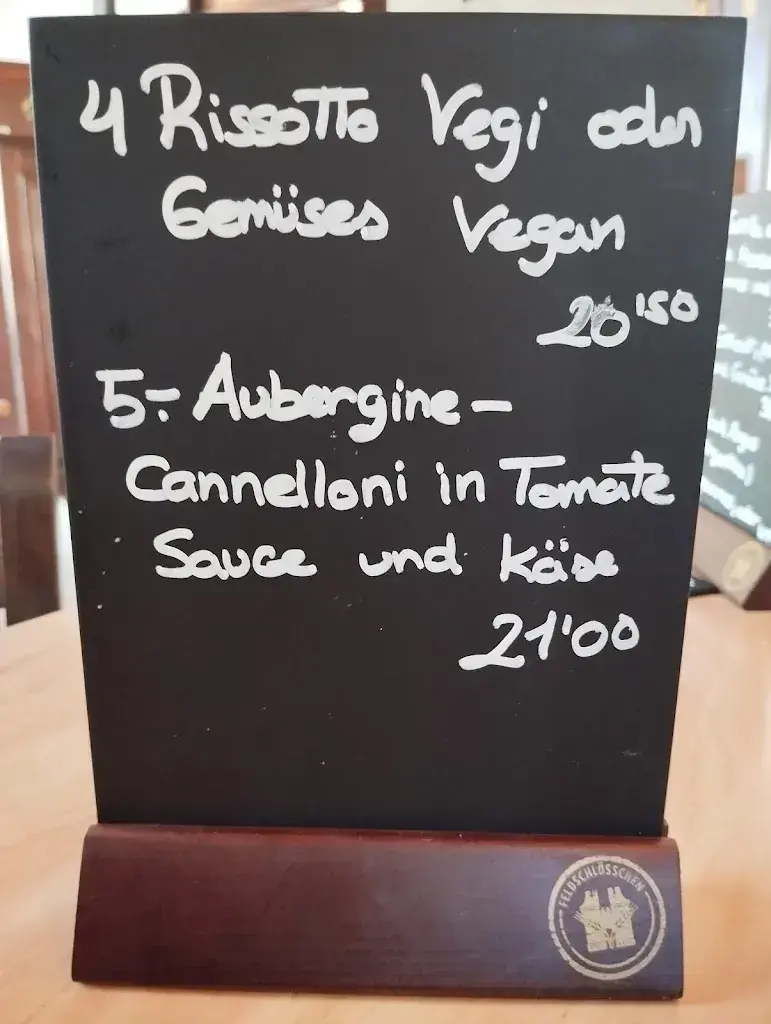 4 Rissotto Vegi oder
Gemüses Vegan
20'50
5.- Aubergine-
Cannelloni in Tomate
Sauce und Käse
21'00
FELDSCHLÖSSCHEN